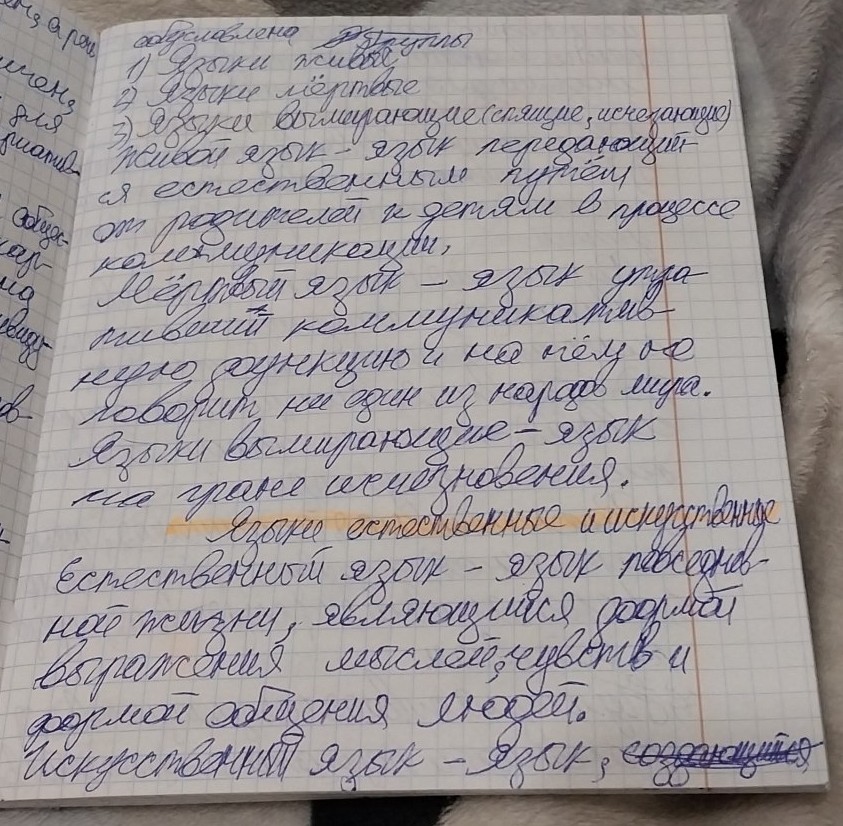 обусловлена группы
1) Языки живые
2) Языки мёртвые
3) Языки вымирающие (спящие, исчезающие)
Живой язык - язык передающий-
ся естественным путём
от родителей к детям в процессе
коммуникации.
Мёртвый язык - язык утра-
тивший коммуникатив-
ную функцию и на нём не
говорит ни один из народов мира.
Языки вымирающие - язык
на гране исчезновения.
Языки естественные и искусственные
Естественный язык - язык повседнев-
ной жизни, являющийся формой
выражения мыслей, чувств и
формой общения людей.
Искусственный язык - язык, создающийся